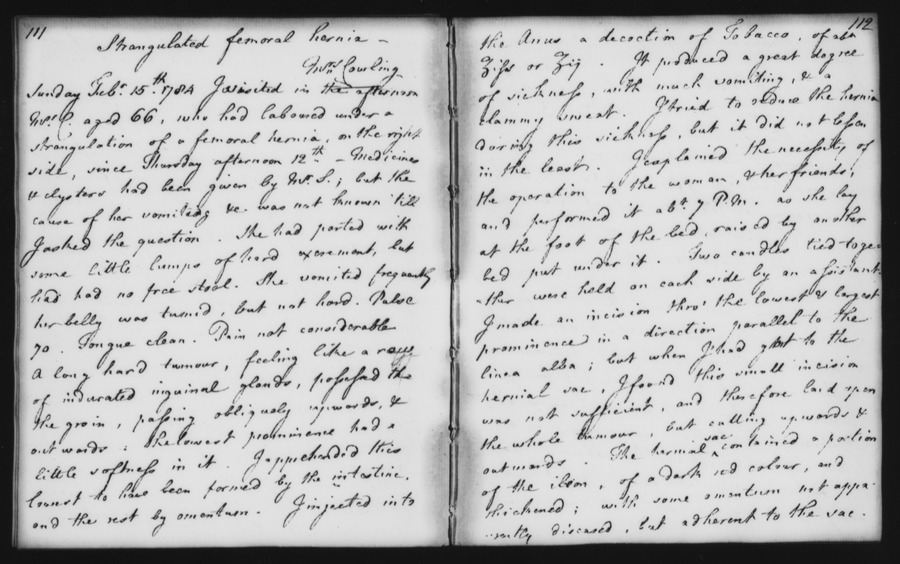 111
Strangulated femoral hernia –
Mrs. Cowling
Sunday Febr. 15th. 1784 I visited in the afternoon
Mrs. C. aged 66, who had laboured under a
strangulation of a femoral hernia, on the right
side, since Thursday afternoon 12th – Medicines
& clysters had been given by Mr. S.; but the
cause of her vomiting &c. was not known 'till
I asked the question. She had parted with
some little lumps of hard excrement, but
had had no free stool. She vomited frequently
her belly was tumid, but not hard. Pulse
70. Tongue clean. Pain not considerable
A long hard tumour, feeling like a
of indurated inguinal glands, possessed the
the groin, passing obliquely upwards, &
outwards: the lowest prominence had a
little softness in it. I apprehended this
lowest to have been formed by the intestine,
and the rest by omentum. I injected into
112
the Anus a decoction of Tobacco, of
ʒifs or ʒij. It produced a great degree
of sickness, with much vomiting, & a
clammy sweat. I tried to reduce the hernia
during this sickness, but it did not lessen
in the least. I explained the necessity of
the operation to the woman, & her friends,
and performed it abt. 7 P.M. as she lay
at the foot of the bed, raised by another
bed put under it. Two candles tied toge-
-ther were held on each side by an assistant.
I made an incision thro' the lowest & largest
prominence in a direction parallel to the
linea alba; but when I had got to the
hernial sac, I found this small incision
was not sufficient, and therefore laid open
the whole tumour, but cutting upwards &
outwards. The hernial sac contained a portion
of the ileon, of a dark red colour, and
thickened; with some omentum not appa-
-rently diseased, but adherent to the sac.